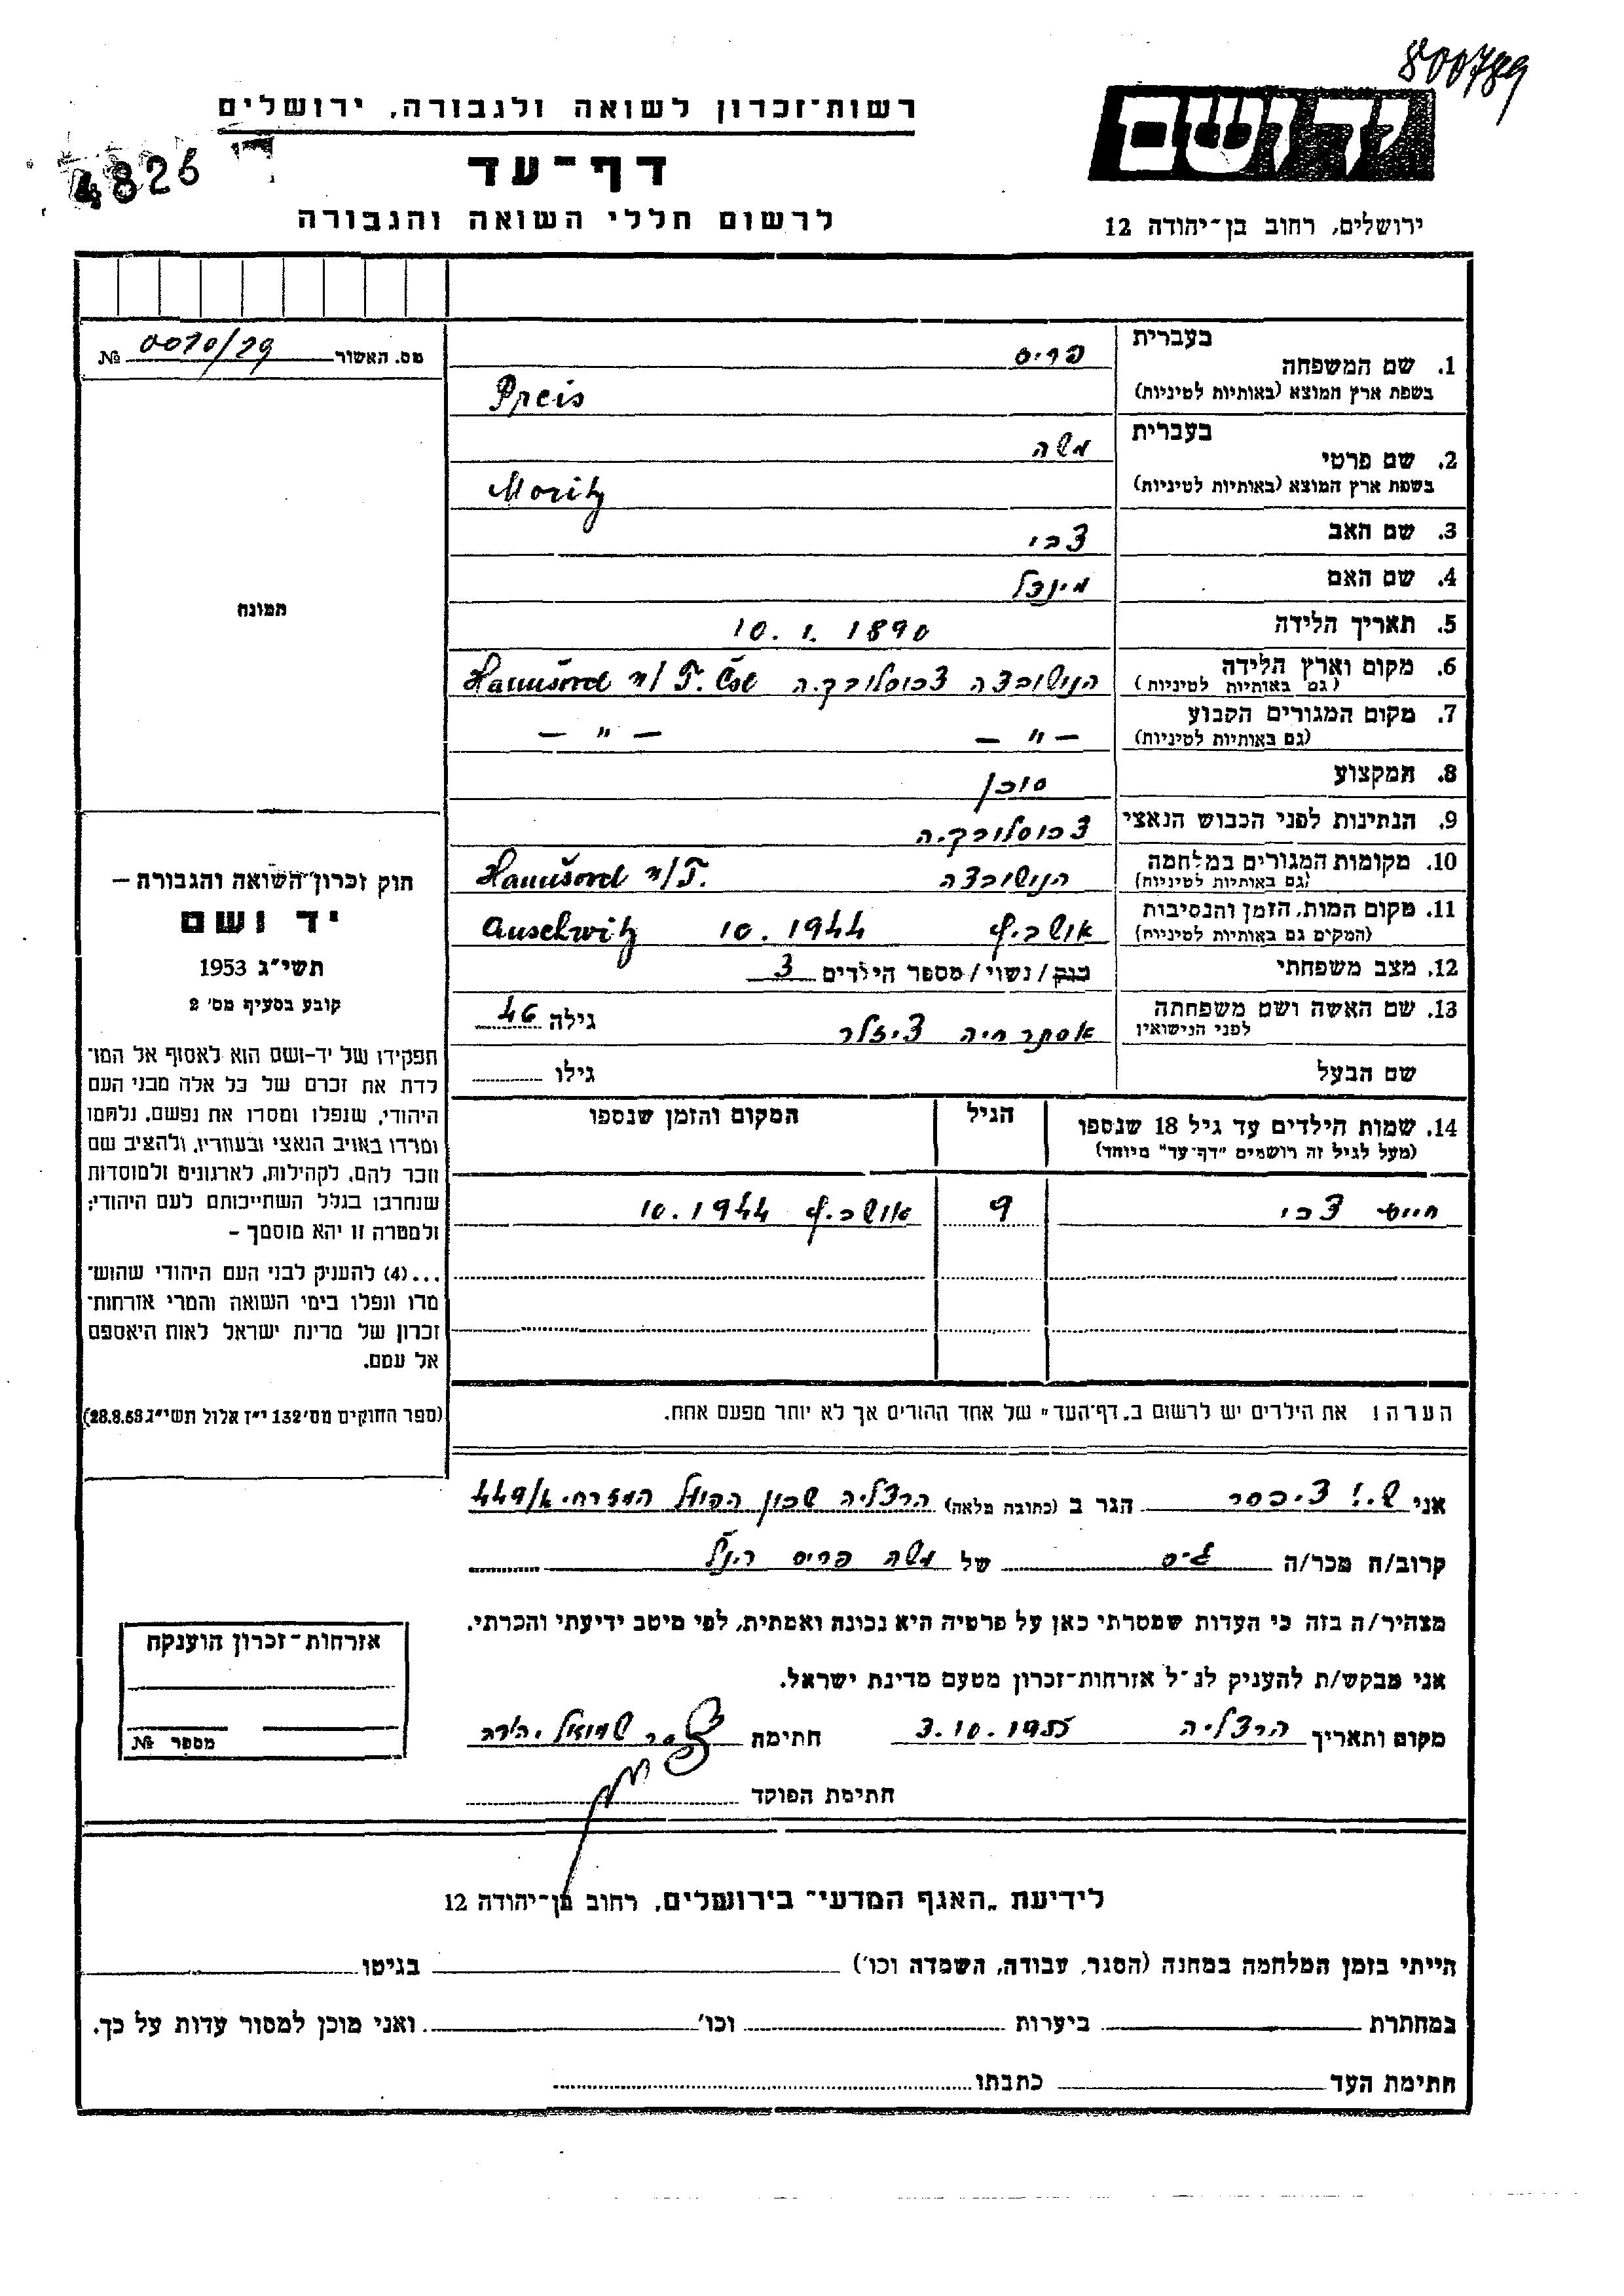 800789
רשות־זכרון לשואה ולגבורה, ירושלים
יד ושם
4826
דף־עד
לרשום חללי השואה והגבורה
ירושלים, רחוב בן־יהודה 12
מס. האשור 0070/29 №
בעברית
1. שם המשפחה פריס
בשפת ארץ המוצא (באותיות לטיניות) Preis
בעברית
2. שם פרטי משה
בשפת ארץ המוצא (באותיות לטיניות) Moritz
3. שם האב צבי
4. שם האם מינדל
5. תאריך הלידה 10. 1. 1890
6. מקום וארץ הלידה הנישובצה צכוסלובקיה Hanušovce n/T. Čsl
(גם באותיות לטיניות)
7. מקום המגורים הקבוע — " — — " —
(גם באותיות לטיניות)
8. המקצוע סוכן
9. הנתינות לפני הכבוש הנאצי צכוסלובקיה
10. מקומות המגורים במלחמה הנישובצה Hanušovce n/T.
(גם באותיות לטיניות)
11. מקום המות, הזמן והנסיבות אושביץ 10. 1944 Auschwitz
(המקום גם באותיות לטיניות)
12. מצב משפחתי רווק/נשוי/מספר הילדים 3
13. שם האשה ושם משפחתה אסתר חיה ציזלר גילה 46
לפני הנישואין
שם הבעל גילו
14. שמות הילדים עד גיל 18 שנספו הגיל המקום והזמן שנספו
(מעל לגיל זה רושמים "דף־עד" מיוחד)
צבי 9 אושביץ 10. 1944
הערה: את הילדים יש לרשום ב„דף־העד" של אחד ההורים אך לא יותר מפעם אחת.
התמונה
חוק זכרון השואה והגבורה —
יד ושם
תשי״ג 1953
קובע בסעיף מס׳ 2
תפקידו של יד־ושם הוא לאסוף אל המו־
לדת את זכרם של כל אלה מבני העם
היהודי, שנפלו ומסרו את נפשם, נלחמו
ומרדו באויב הנאצי ובעוזריו, ולהציב שם
וזכר להם, לקהילות, לארגונים ולמוסדות
שנחרבו בגלל השתייכותם לעם היהודי;
ולמטרה זו יהא מוסמך —
...(4) להעניק לבני העם היהודי שהוש־
מדו ונפלו בימי השואה והמרי אזרחות־
זכרון של מדינת ישראל לאות היאספם
אל עמם.
(ספר החוקים מס׳ 132 י״ז אלול תשי״ג 28.8.53)
אני ש.י. ציכסר הגר ב (כתובת מלאה) הרצליה שכון הפועל המזרחי א/449
קרוב/ה מכר/ה גיס של משה פריס הנ״ל
מצהיר/ה בזה כי העדות שמסרתי כאן על פרטיה היא נכונה ואמתית, לפי מיטב ידיעתי והכרתי.
אני מבקש/ת להעניק לנ״ל אזרחות־זכרון מטעם מדינת ישראל.
מקום ותאריך הרצליה 3. 10. 1955 חתימת שמואל
חתימת הפוקד
אזרחות־זכרון הוענקה
מספר №
לידיעת „האגף המדעי" בירושלים, רחוב בן־יהודה 12
הייתי בזמן המלחמה במחנה (הסגר, עבודה, השמדה וכו׳) בגיטו
במחתרת ביערות וכו׳ ואני מוכן למסור עדות על כך.
חתימת העד כתבתו